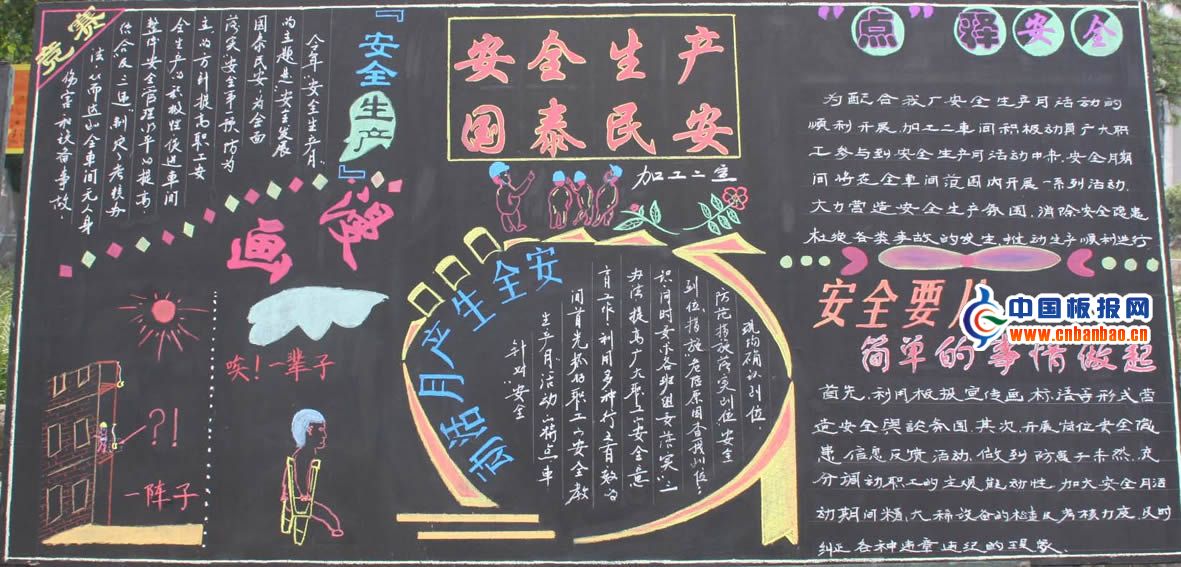 竞赛
『安全生产』
今年"安全生产月"
的主题是"安全发展
国泰民安"为全面
落实"安全第一预防为
主"的方针提高职工安
全生产的积极性促进车间
整体安全管理水平的提高,
法,从而达到全车间无人身
伤害和设备事故.
漫画
唉!一辈子
?!
一阵子
安全生产
国泰民安
加工二车
安全生产月活动
针对"安全
生产月"活动的特点车
间首先抓好职工的安全教
育工作,利用多种行之有效的
办法提高广大职工的安全意
识同时要求各班组要落实"三
到位,措施危险原因查找到位,
防范措施落实到位,安全
现场确认到位
"点"释安全
为配合我厂安全生产月活动的
顺利开展,加工二车间积极动员广大职
工参与到安全生产月活动中来,安全月期
间将在全车间范围内开展一系列活动,
大力营造安全生产氛围,消除安全隐患
杜绝各类事故的发生,推动生产顺利进行
安全要从
简单的事情做起
首先,利用板报宣传画,标语等形式营
造安全舆论氛围,其次,开展岗位安全隐
患信息反馈活动,做到防患于未然,充
分调动职工的主观能动性,加大安全月活
动期间精,大,稀设备的检查及考核力度,及时
纠正各种违章违纪的现象.
中国板报网
www.cnbanbao.cn